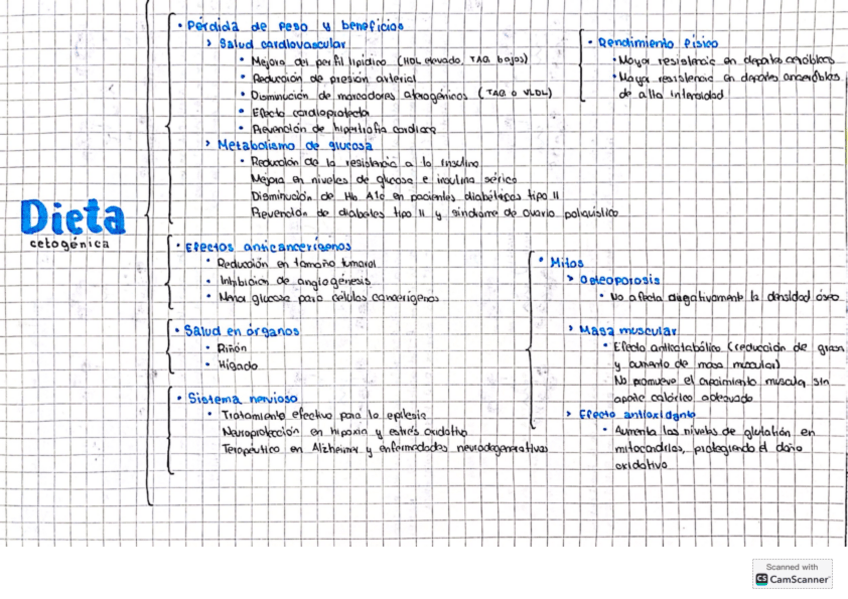 Dieta
cetogénica
• Pérdida de peso y beneficios
› Salud cardiovascular
• Mejora del perfil lipídico (HDL elevado, TAG bajos)
• Reducción de presión arterial
• Disminución de marcadores aterogénicos (TAG o VLDL)
• Efecto cardioprotector
• Prevención de hipertrofia cardiaca
› Metabolismo de glucosa
• Reducción de la resistencia a la insulina
Mejora en niveles de glucosa e insulina sérica
Disminución de Hb A1c en pacientes diabéticos tipo II
Prevención de diabetes tipo II y síndrome de ovario poliquístico
• Efectos anticancerígenos
• Reducción en tamaño tumoral
• Inhibición de angiogénesis
• Menor glucosa para células cancerígenas
• Salud en órganos
• Riñón
• Hígado
• Sistema nervioso
• Tratamiento efectivo para la epilepsia
Neuroprotección en hipoxia y estrés oxidativo
Terapéutico en Alzheimer y enfermedades neurodegenerativas
• Rendimiento físico
• Mayor resistencia en deportes aeróbicos
• Mayor resistencia en deportes anaeróbicos
de alta intensidad
• Mitos
› Osteoporosis
• No afecta negativamente la densidad ósea
› Masa muscular
• Efecto anticatabólico (reducción de grasa
y aumento de masa muscular)
No promueve el crecimiento muscular sin
aporte calórico adecuado
› Efecto antioxidante
• Aumenta los niveles de glutatión en
mitocondrias, protegiendo el daño
oxidativo
Scanned with
CS CamScanner